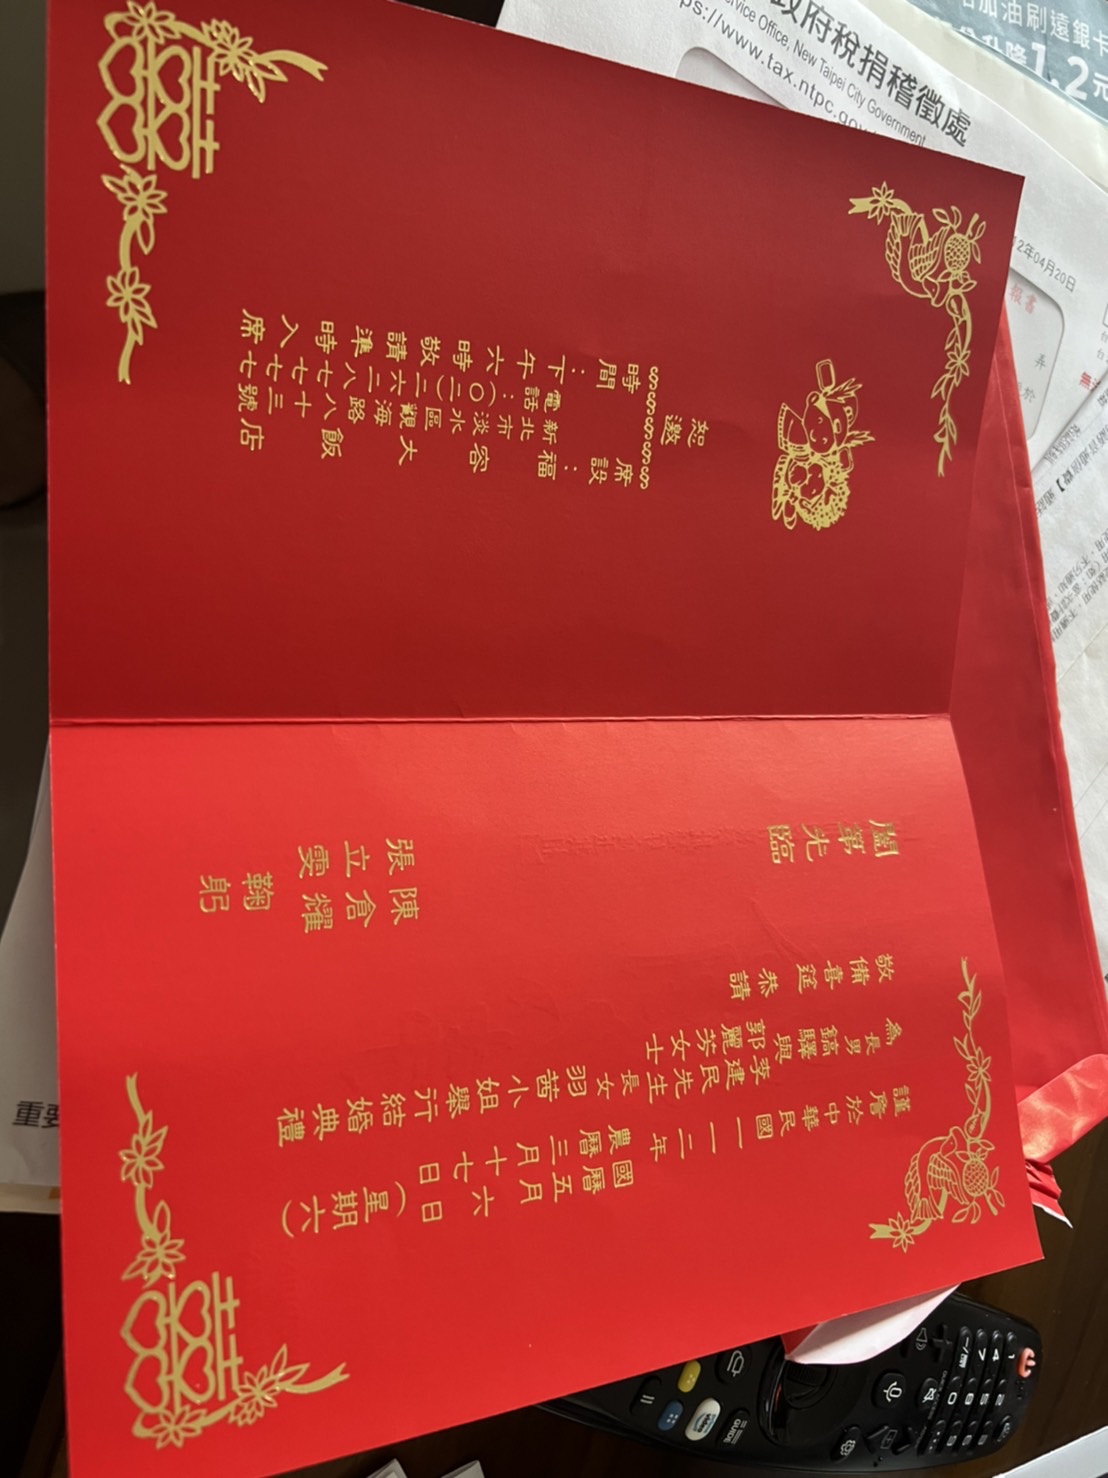 謹詹於中華民國一一二年
國曆五月六日（星期六）
農曆三月十七日
為長男鎬驛與
李建民先生
郭麗芳女士
長女羽茜小姐舉行結婚典禮
敬備喜筵 恭請
闔第光臨
陳倉耀
張立雯
鞠躬
恕邀
席設：福容大飯店
新北市淡水區觀海路八十三號
電話：（〇二）二六二八七七七七
時間：下午六時敬請準時入席
囍
囍
加油刷遠銀卡
1.2元
政府稅捐稽徵處
Service Office, New Taipei City Government
ps://www.tax.ntpc.gov
12年04月20日
GUIDE